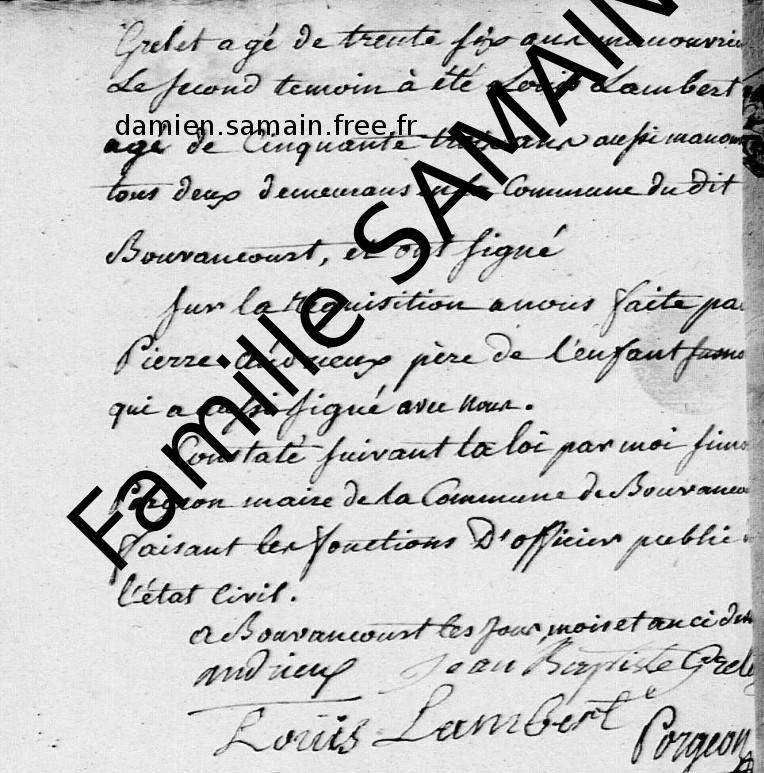 Grelet agé de trente six ans manouvrie
Le second temoin à été Louis Lambert
damien.samain.free.fr
agé de Cinquante trois ans aussi manou
tous deux demeurans en la Commune du dit
Bouvancourt, et ont signé
Sur la Requisition a nous faite pa
Pierre Andrieux père de l'enfant
qui a aussi signé avec nous.
Constaté suivant la loi par moi Simo
Porgeon maire de la Commune de Bouvanco
faisant les fonctions D'officier public
l'état Civil.
a Bouvancourt les jour, mois et an ci des
andrieux Jean Baptiste Grele
Louis Lambert Porgeon
Famille SAMAIN